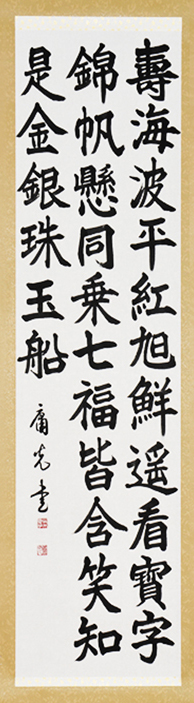 壽海波平紅旭鮮遥看寶字
錦帆懸同乗七福皆含笑知
是金銀珠玉船
庸光書